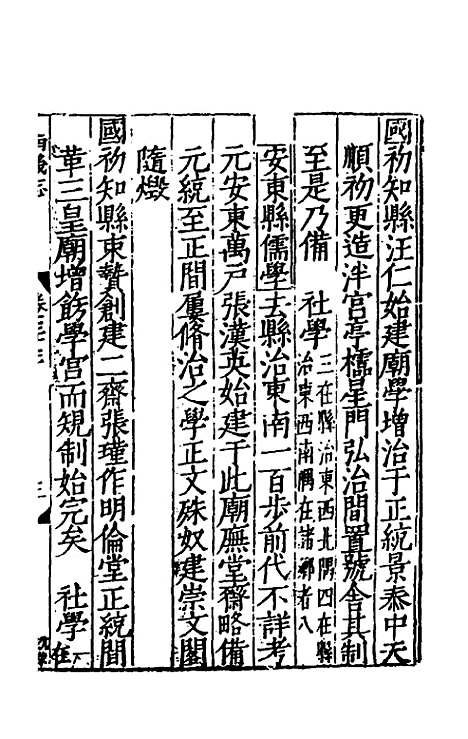 國初知縣汪仁始建廟學增治于正統景泰中天
順初更造泮宮亭櫺星門弘治間置號舍其制
至是乃備　社學三在縣治東西北隅四在縣
治東西南隅在諸鄉者八
安東縣儒學去縣治東南一百步前代不詳考
元安東萬戶張漢英始建于此廟廡堂齋略備
元統至正間屢脩治之學正文殊奴建崇文閣
隨燬
國初知縣東贄創建二齋張瑾作明倫堂正統間
革三皇廟增飭學宮而規制始完矣　社學在